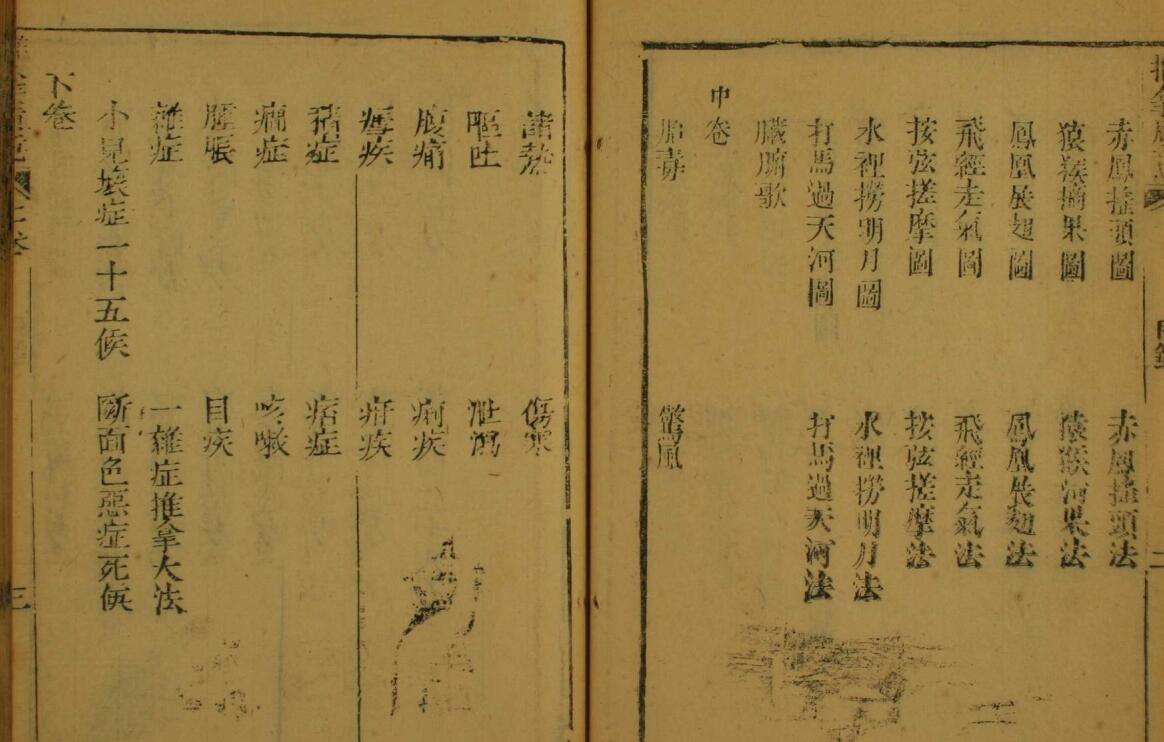 赤鳳搖頭圖 赤鳳搖頭法
猿猴摘果圖 猿猴河果法
鳳凰展翅圖 鳳凰展翅法
飛經走氣圖 飛經走氣法
按弦搓摩圖 按弦搓摩法
水裡撈明月圖 水裡撈明月法
打馬過天河圖 打馬過天河法
臟腑歌
中卷
胎毒 驚風
諸熱 傷寒
嘔吐 泄瀉
腹痛 痢疾
瘧疾 疳疾
積症 痞症
癇症 咳嗽
腫脹 目疾
雜症 一雜症推拿大法
小兒壞症一十五候 斷面色惡症死候
下卷
三